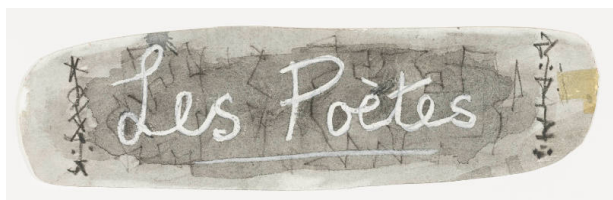 Les Poètes